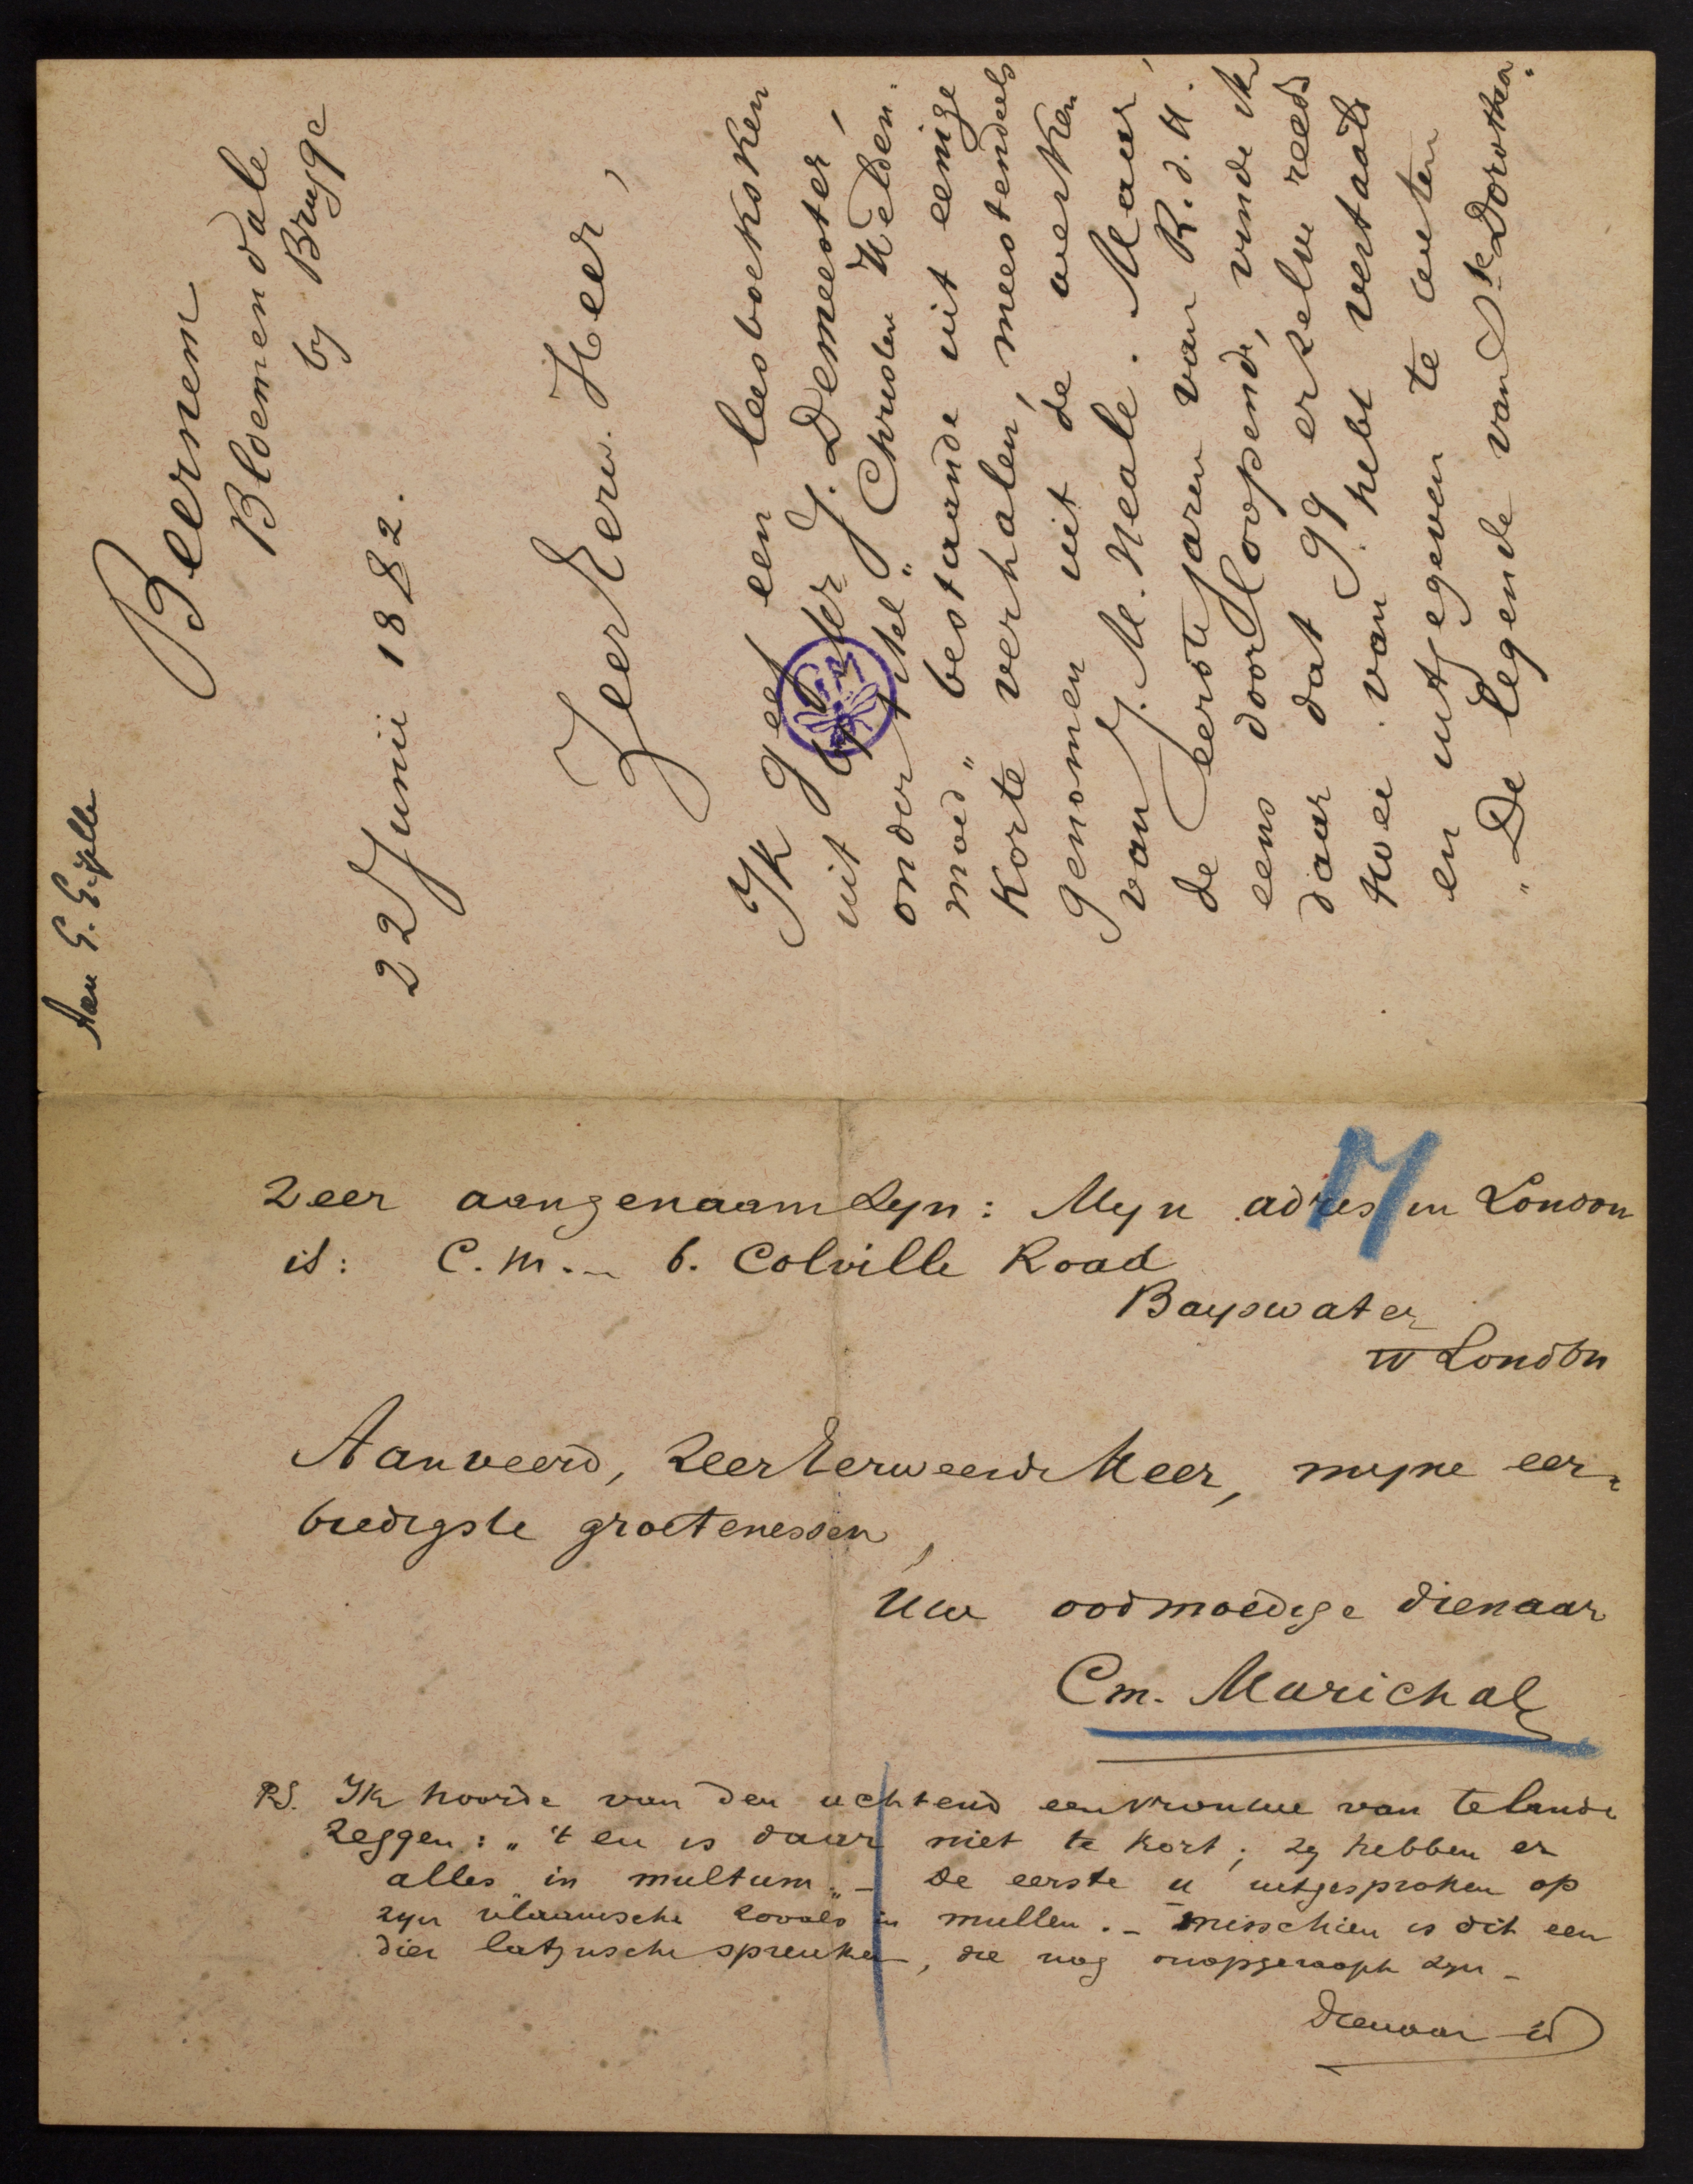 Aan G. Gezelle
Beernem
Bloemendale
by Brugge
22 Junii 1882.
Zeer Eerw. Heer,
Ik geef een leesboekksken
uit by der J. Demeester,
onder titel „Christen Helden-
moed„ bestaande uit eenige
korte verhalen, meestendeels
genomen uit de werken
van J. M. Neale. Maar,
de eerste jaren van R.d.H.
eens doorloopende, vinde ik
daar dat gy er zelve reeds
twee van hebt vertaald
en uitgegeven te weten
„De legende van Ste Dorothea„
GM
zeer aangenaam zyn: Myn adres in London
is: C.M. – 6. Colville Road
Bayswater
W London
Aanveerd, Zeer Eerweerde Heer, myne eer-
biedigste groetenessen,
Uw oodmoedige dienaar
Cm. Marichal
PS. Ik hoorde van den uchtend een vrouwe van te lande
zeggen: „'t en is daar niet te kort; zy hebben er
alles „in multum„ – De eerste u uitgesproken op
zyn vlaamsche zooals in mullen. – Misschien is dit een
dier latynsche spreuken, die nog onopgeraapt zyn –
Dienaar id